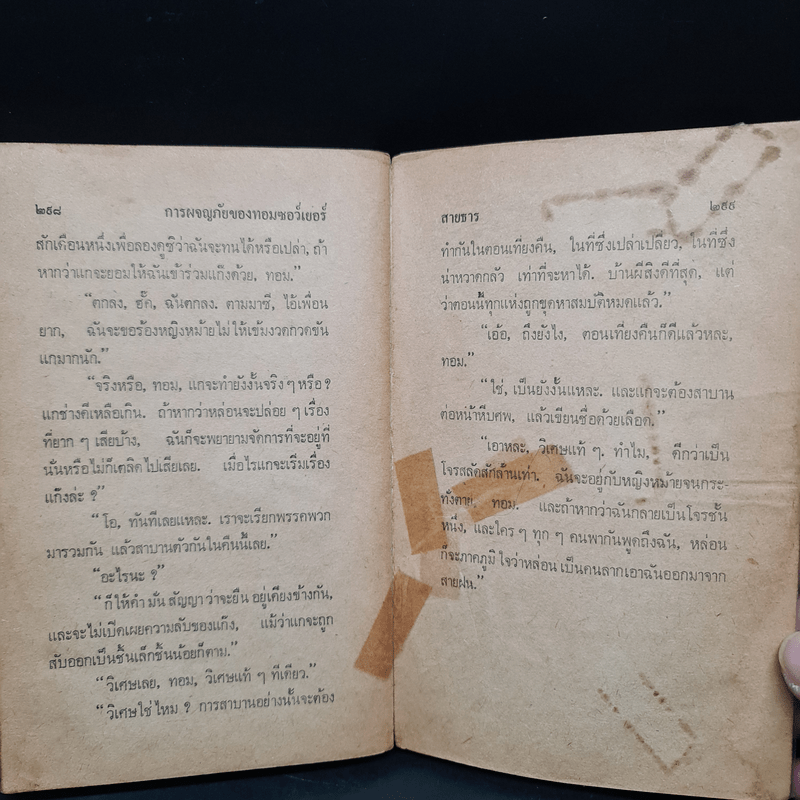 ๒๕๘ การผจญภัยของทอมซอว์เยอร์
สักเดือนหนึ่งเพื่อลองดูซิว่าฉันจะทนได้หรือเปล่า, ถ้า
หากว่าแกจะยอมให้ฉันเข้าร่วมแก๊งด้วย, ทอม.”
“ตกลง, ฮั๊ค, ฉันตกลง. ตามมาซี, ไอ้เพื่อน
ยาก, ฉันจะขอร้องหญิงหม้ายไม่ให้เข้มงวดกวดขัน
แกมากนัก.”
“จริงหรือ, ทอม, แกจะทำยังงั้นจริง ๆ หรือ ?
แกช่างดีเหลือเกิน. ถ้าหากว่าหล่อนจะปล่อย ๆ เรื่อง
ที่ยาก ๆ เสียบ้าง, ฉันก็จะพยายามจัดการที่จะอยู่ที่
นั่นหรือไม่ก็เตลิดไปเสียเลย. เมื่อไรแกจะเริ่มเรื่อง
แก๊งล่ะ ?”
“โอ, ทันทีเลยแหละ. เราจะเรียกพรรคพวก
มารวมกัน แล้วสาบานตัวกันในคืนนี้เลย.”
“อะไรนะ ?”
“ก็ให้คำมั่นสัญญาว่าจะยืนอยู่เคียงข้างกัน,
และจะไม่เปิดเผยความลับของแก๊ง, แม้ว่าแกจะถูก
สับออกเป็นชิ้นเล็กชิ้นน้อยก็ตาม.”
“วิเศษเลย, ทอม, วิเศษแท้ ๆ ทีเดียว.”
“วิเศษใช่ไหม ? การสาบานอย่างนั้นจะต้อง
สายธาร ๒๕๙
ทำกันในตอนเที่ยงคืน, ในที่ซึ่งเปล่าเปลี่ยว, ในที่ซึ่ง
น่าหวาดกลัว เท่าที่จะหาได้. บ้านผีสิงดีที่สุด, แต่
ว่าตอนนี้ทุกแห่งถูกขุดหาสมบัติหมดแล้ว.”
“เอ้อ, ถึงยังไง, ตอนเที่ยงคืนก็ดีแล้วหละ,
ทอม.”
“ใช่, เป็นยังงั้นแหละ. และแกจะต้องสาบาน
ต่อหน้าหีบศพ, แล้วเขียนชื่อด้วยเลือด.”
“เอาหละ, วิเศษแท้ ๆ. ทำไม, ดีกว่าเป็น
โจรสลัดสักล้านเท่า. ฉันจะอยู่กับหญิงหม้ายจนกระ-
ทั่งตาย, ทอม. และถ้าหากว่าฉันกลายเป็นโจรชั้น
หนึ่ง, และใคร ๆ ทุก ๆ คนพากันพูดถึงฉัน, หล่อน
ก็จะภาคภูมิใจว่าหล่อนเป็นคนลากเอาฉันออกมาจาก
สายฝน.”